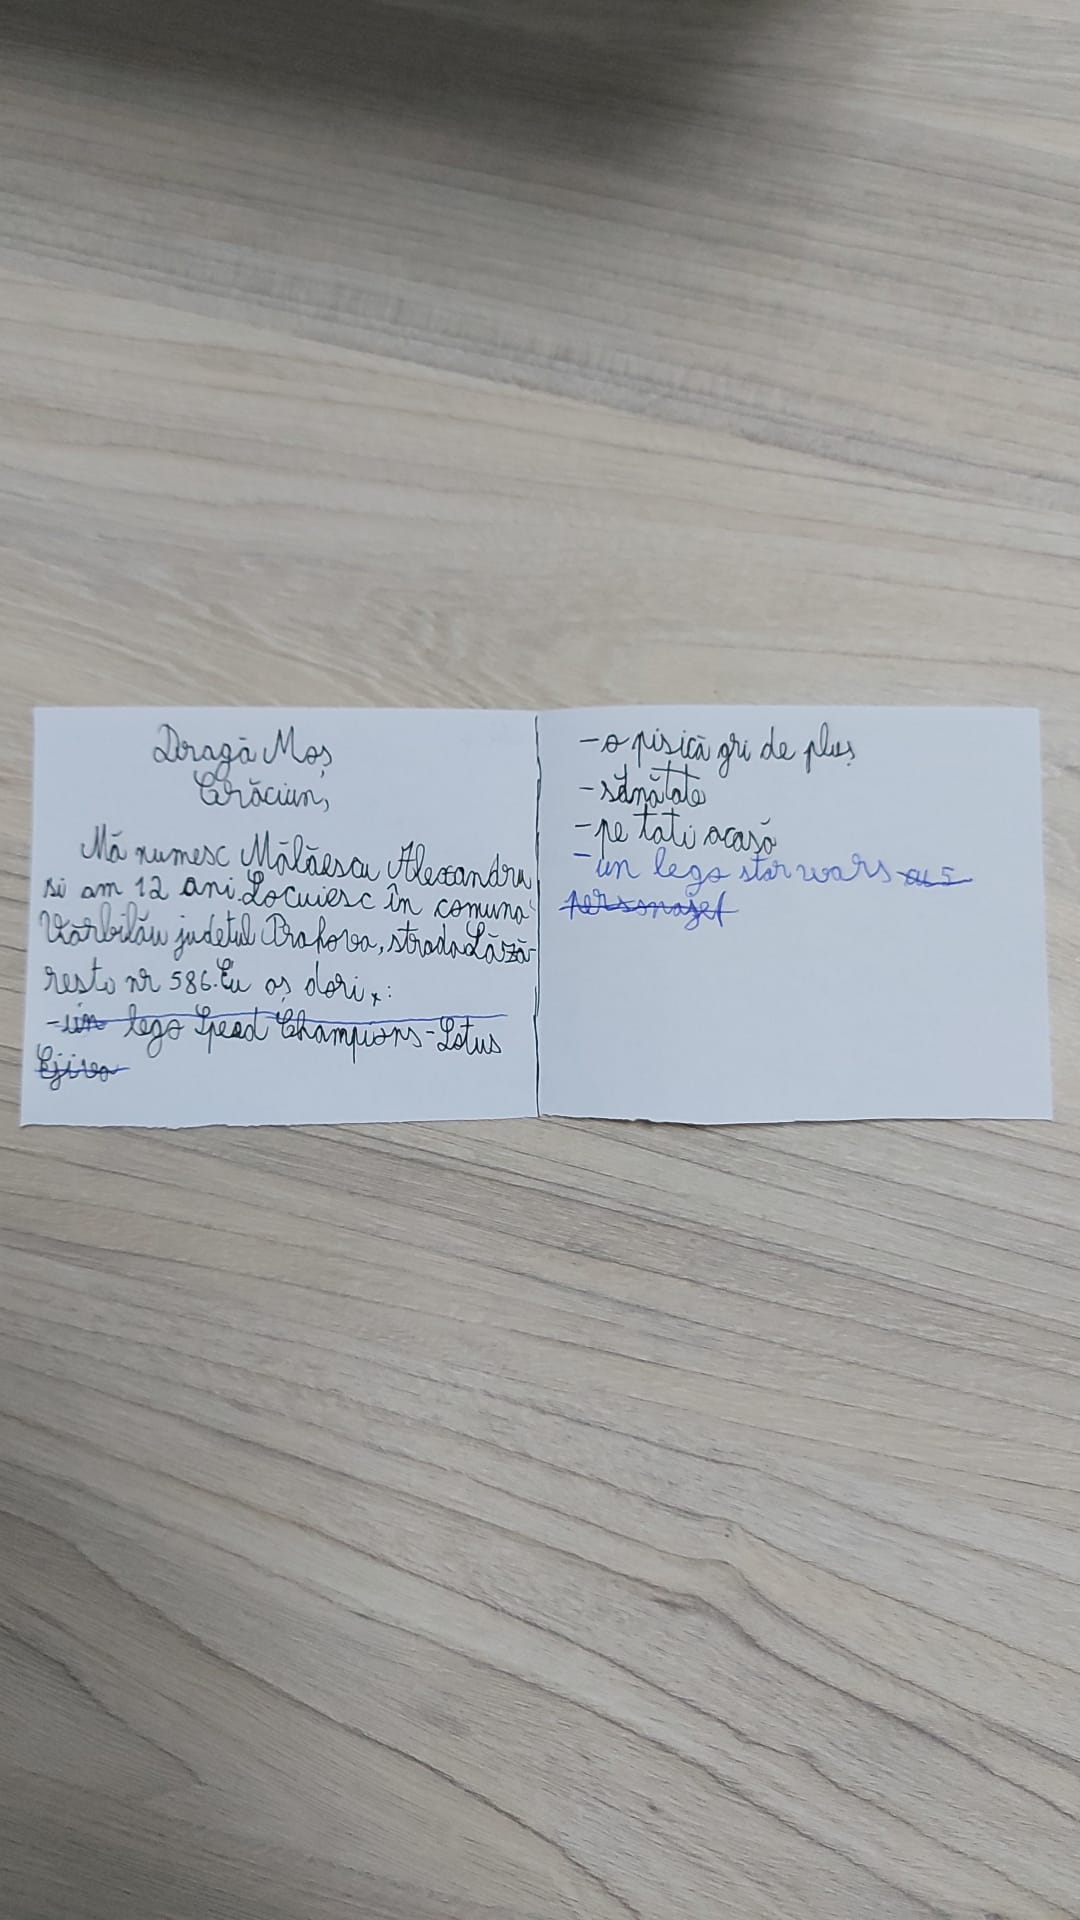 Dragă Moș
Crăciun,
Mă numesc Mălăescu Alexandru
si am 12 ani. Locuiesc în comuna
Vărbilău judetul Prahova, strada Lăză-
resto nr 586. Eu as dori:
-un lego Spead Champions-Lotus
-o pisică gri de pluș
-sănătate
-pe tati acasă
-un lego star wars cu 5
personaje